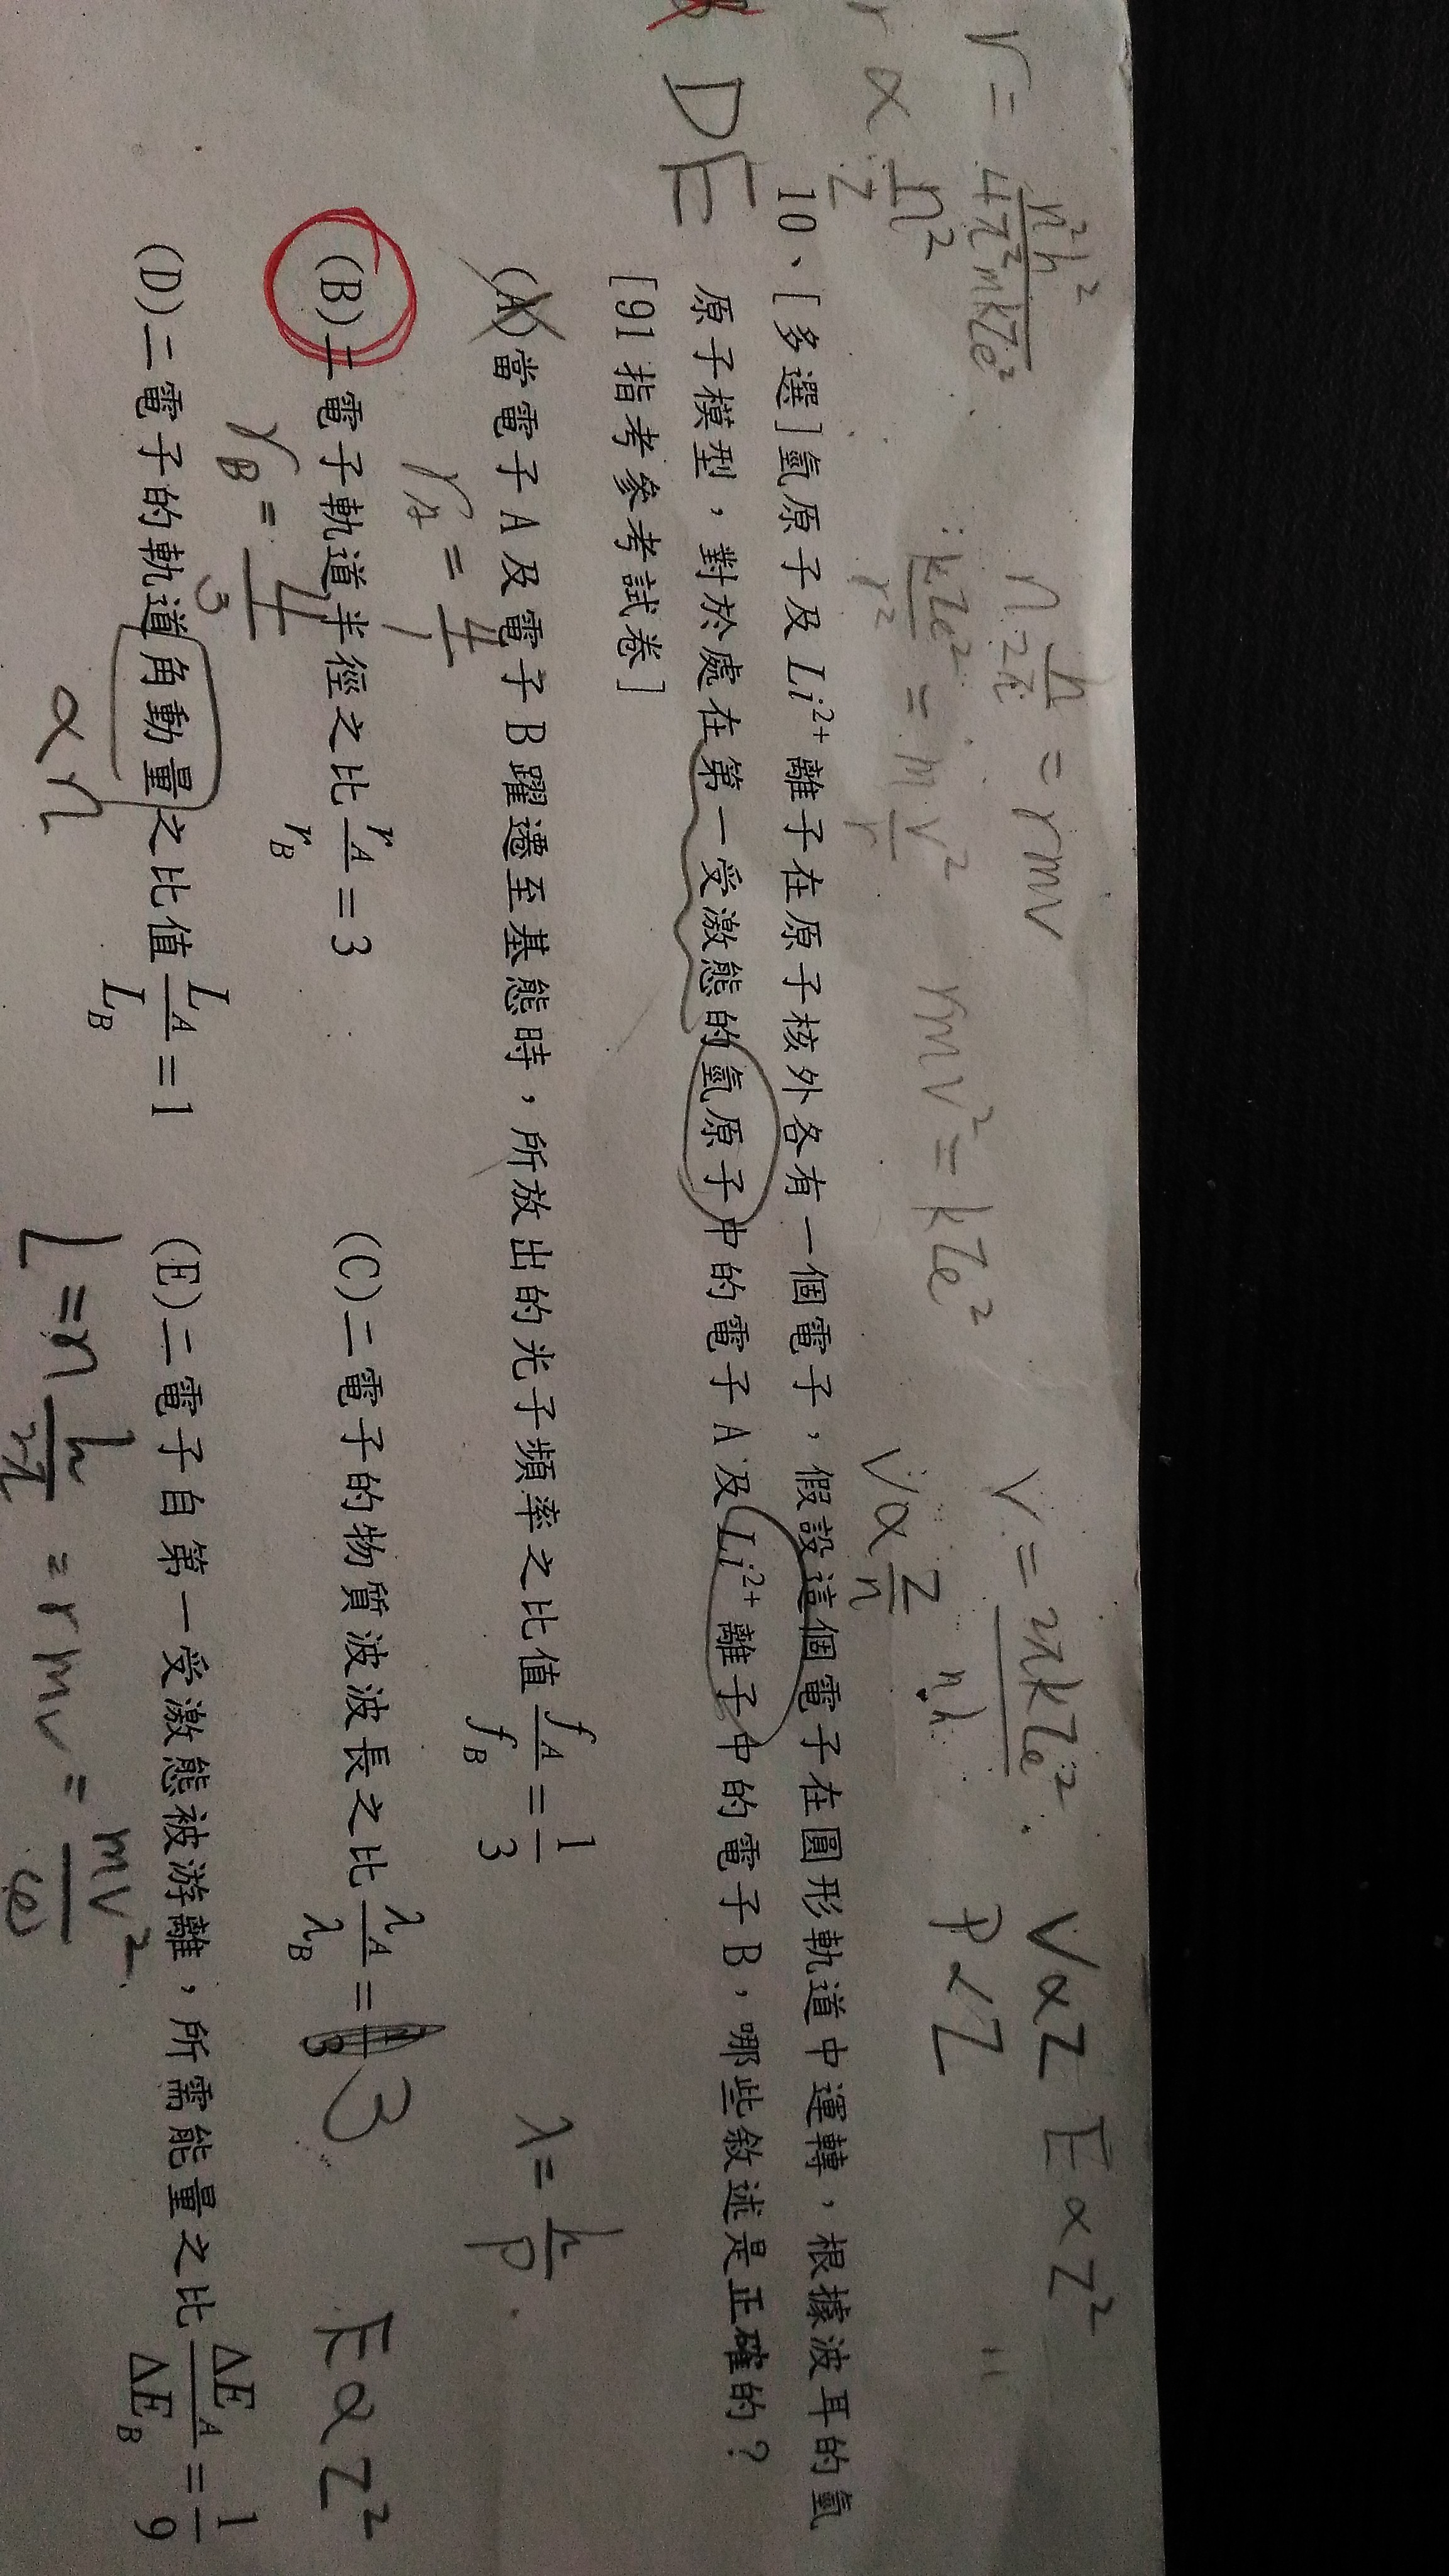 r = n²h² / 4π²mkZe²
n h/2π = rmv
v = 2πkZe² / nh
V∝Z E∝Z²
r ∝ n²/Z
kZe²/r² = m v²/r
rmv² = kZe²
V∝ Z/n
P∝Z
DE
10、[多選]氫原子及Li²⁺離子在原子核外各有一個電子，假設這個電子在圓形軌道中運轉，根據波耳的氫
原子模型，對於處在第一受激態的氫原子中的電子A及Li²⁺離子中的電子B，哪些敘述是正確的？
[91指考參考試卷]
(A)當電子A及電子B躍遷至基態時，所放出的光子頻率之比值 f_A/f_B = 1/3
λ = h/P
r_A = 4/1
(B)二電子軌道半徑之比 r_A/r_B = 3
(C)二電子的物質波波長之比 λ_A/λ_B = 3
r_B = 4/3
E∝Z²
(D)二電子的軌道角動量之比值 L_A/L_B = 1
(E)二電子自第一受激態被游離，所需能量之比 ΔE_A/ΔE_B = 1/9
∝n
L = n h/2π = rmv = mv²/ω